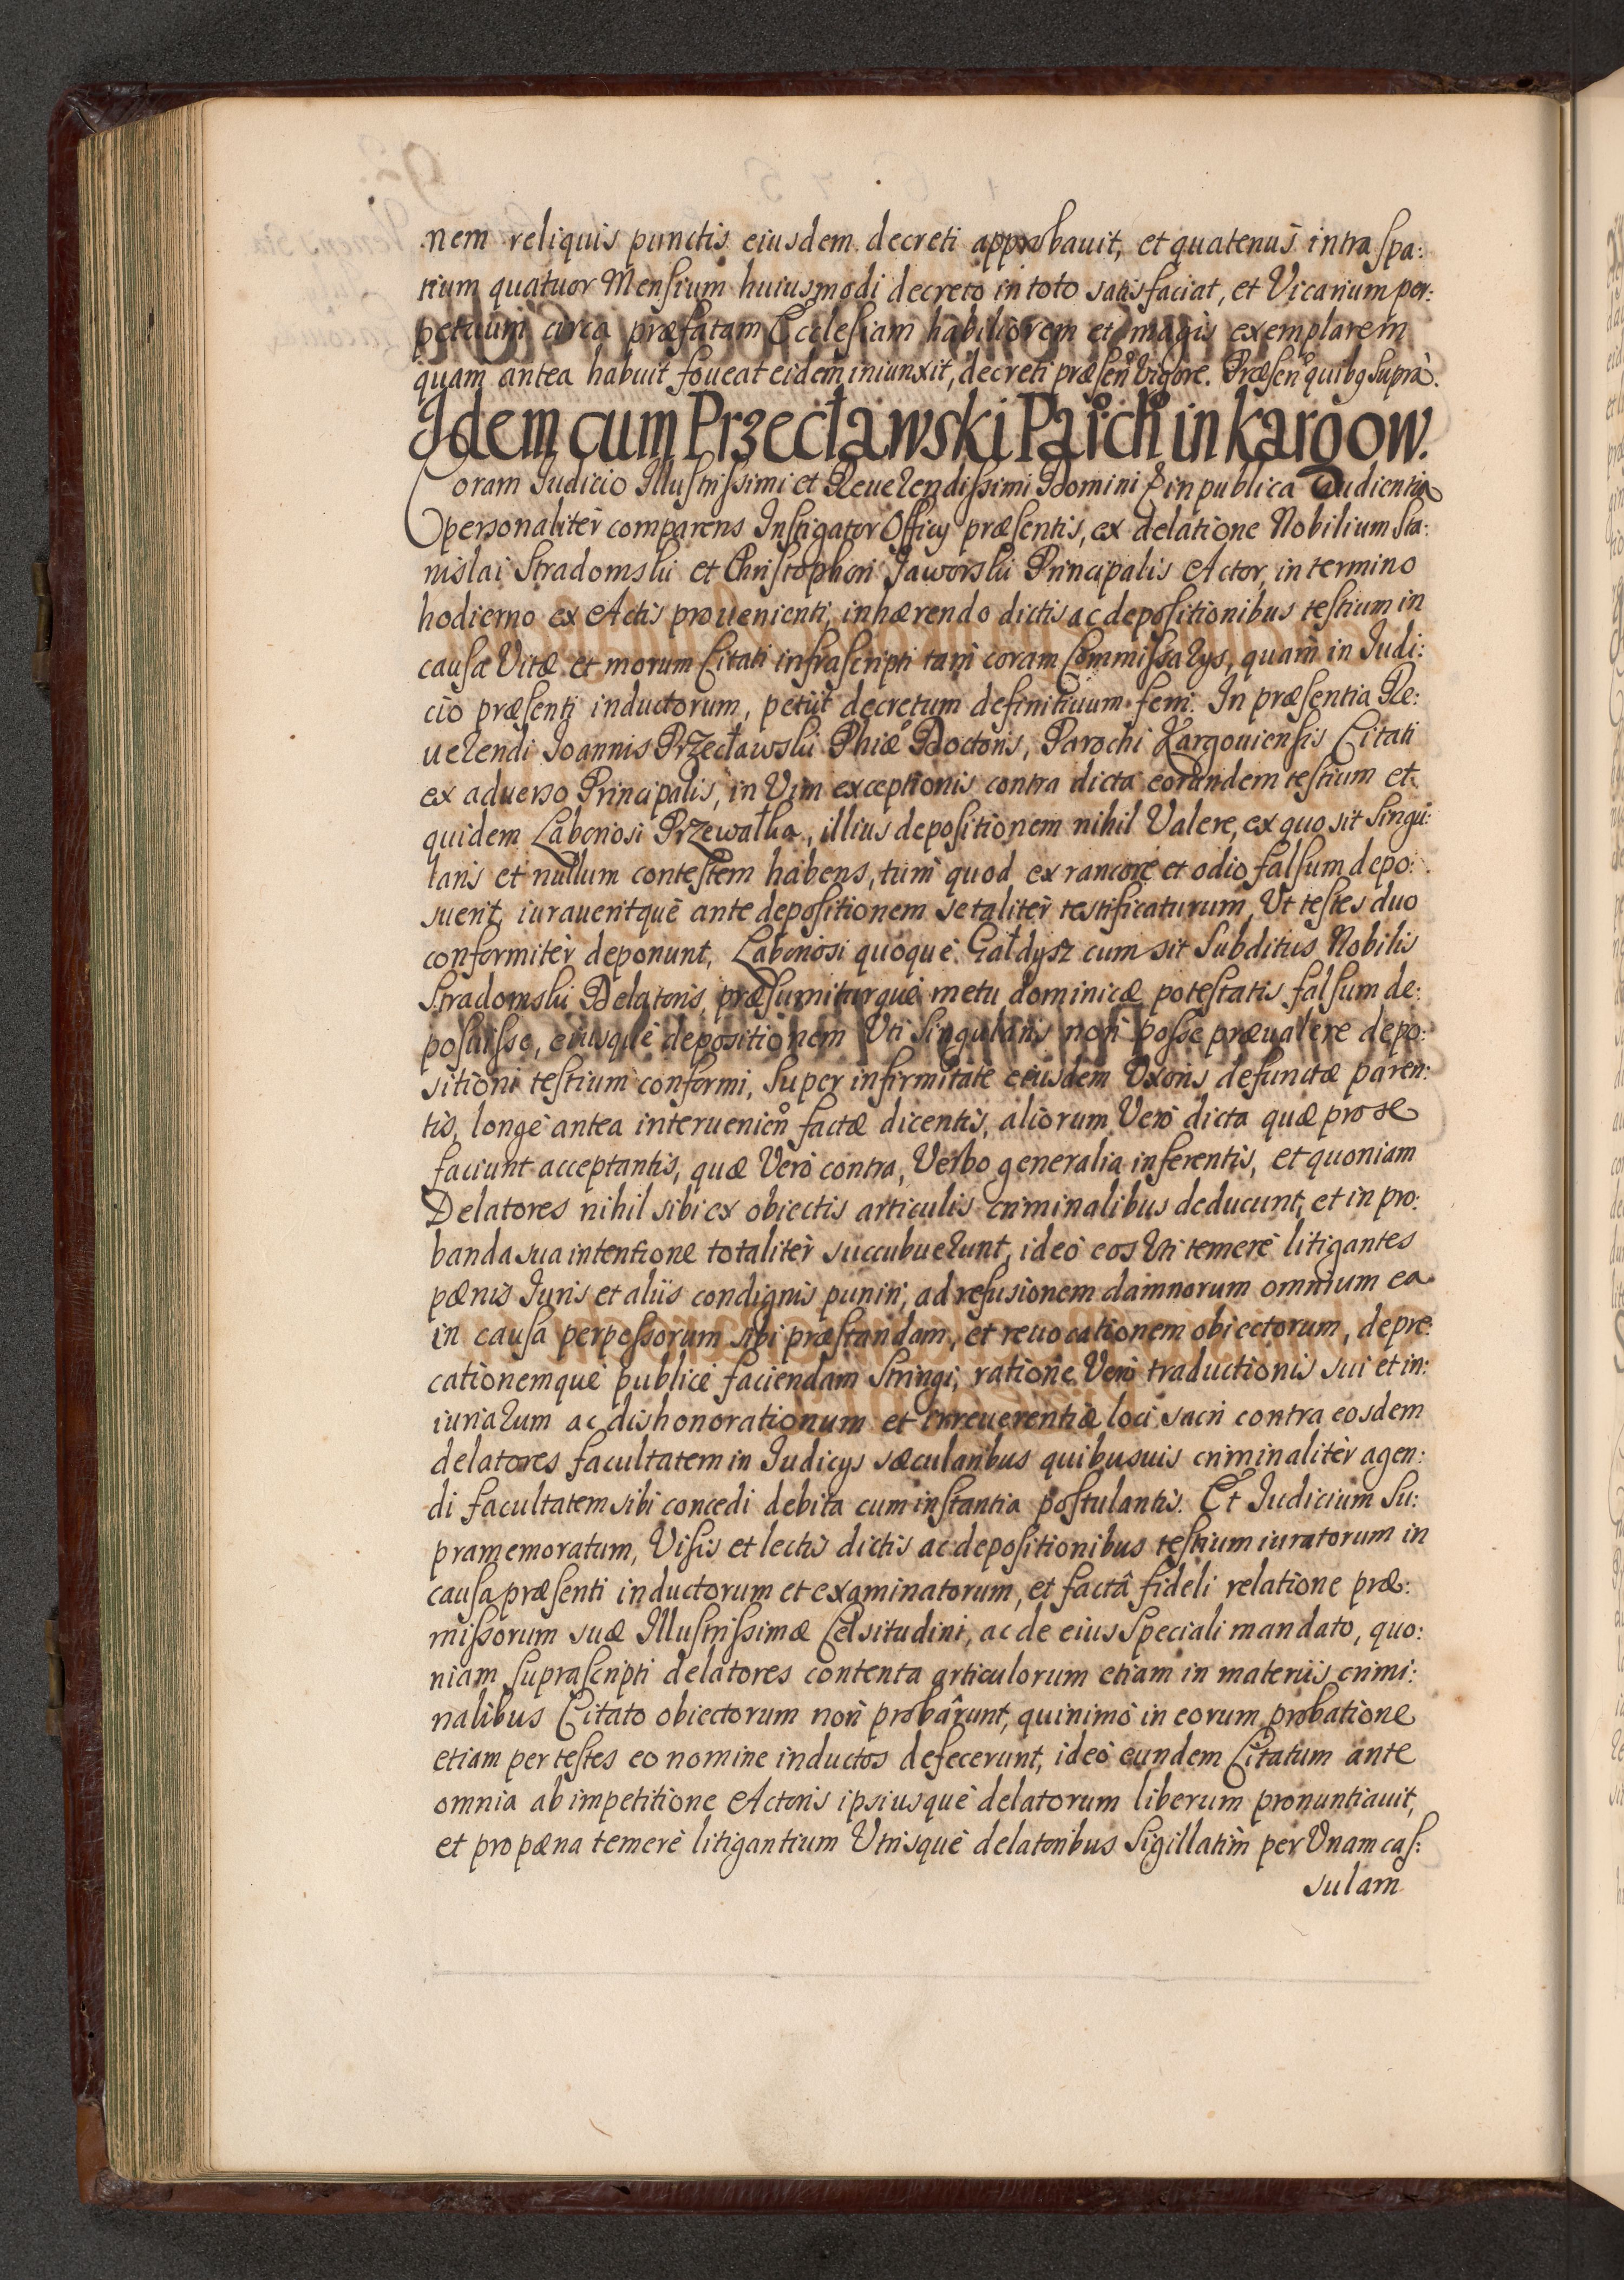 nem reliquis punctis eiusdem decreti approbauit, et quatenus intra spa:
tium quatuor Mensium huiusmodi decreto in toto satisfaciat, et Vicarium per:
petuum circa præfatam Ecclesiam habiliorem et magis exemplarem
quam antea habuit foueat eidem iniunxit, decreti præsen̊ vigore. Præsen̊ quibꝫ supra.
Idem cum Przecławski Paroch̊ in kargow.
Coram Iudicio Illustrissimi et Reuerendissimi Domini & in publica Audientia
personalitèr comparens Instigator Officij præsentis, ex delatione Nobilium Sta:
nislai Stradomski et Christophori Jaworski Principalis Actor, in termino
hodierno ex Actis prouenienti, inhærendo dictis ac depositionibus testium in
causa Vitæ et morum Citati infrascripti tam coram Commissarijs, quam in Iudi:
cio præsenti inductorum, petijt decretum definitiuum ferri. In præsentia Re:
uerendi Joannis Przecławski Phiæ Doctoris, Parochi Kargouiensis Citati
ex aduerso Principalis, in Vim exceptionis contra dicta eorundem testium et
quidem Laboriosi Przewałka, illius depositionem nihil Valere, ex quo sit singu:
laris et nullum contestem habens, tum quod ex rancore et odio falsum depo:
suerit, iuraueritquè ante depositionem se talitèr testificaturum, Ut testes duo
conformitèr deponunt, Laboriosi quoquè Gałdysz cum sit Subditus Nobilis
Stradomski Delatoris, præsumiturquè metu dominicæ potestatis falsum de:
posuisse, eiusquè depositionem Uti Singularis non posse præualere depo:
sitioni testium conformi, super infirmitate eiusdem Uxoris defunctæ paren:
tis, longè antea interuenien̊ factæ dicentis, aliorum Verò dicta quæ pro se
faciunt acceptantis, quæ Verò contra, Verbo generalia inferentis, et quoniam
Delatores nihil sibi ex obiectis articulis criminalibus deducunt, et in pro:
banda sua intentione totalitèr succubuerunt, ideò eos Uti temerè litigantes
pænis Iuris et aliis condignis puniri, ad refusionem damnorum omnium ea
in causa perpessorum sibi præstandam, et reuocationem obiectorum, depre:
cationemquè publicè faciendam stringi, ratione Verò traductionis sui et in:
iuriarum ac dishonorationum et irreuerentiæ loci sacri contra eosdem
delatores facultatem in Iudicijs sæcularibus quibusuis criminalitèr agen:
di facultatem sibi concedi debita cum instantia postulantis. Et Iudicium Su:
pramemoratum, Visis et lectis dictis ac depositionibus testium iuratorum in
causa præsenti inductorum et examinatorum, et factâ fideli relatione præ:
missorum suæ Illustrissimæ Celsitudini, ac de eius Speciali mandato, quo:
niam suprascripti delatores contenta articulorum etiam in materiis crimi:
nalibus Citato obiectorum non probârunt, quinimò in eorum probatione
etiam per testes eo nomine inductos defecerunt, ideò eundem Citatum ante
omnia ab impetitione Actoris ipsiusquè delatorum liberum pronuntiauit,
et pro pæna temerè litigantium Utrisquè delatoribus Sigillatim per Unam cas:
sulam